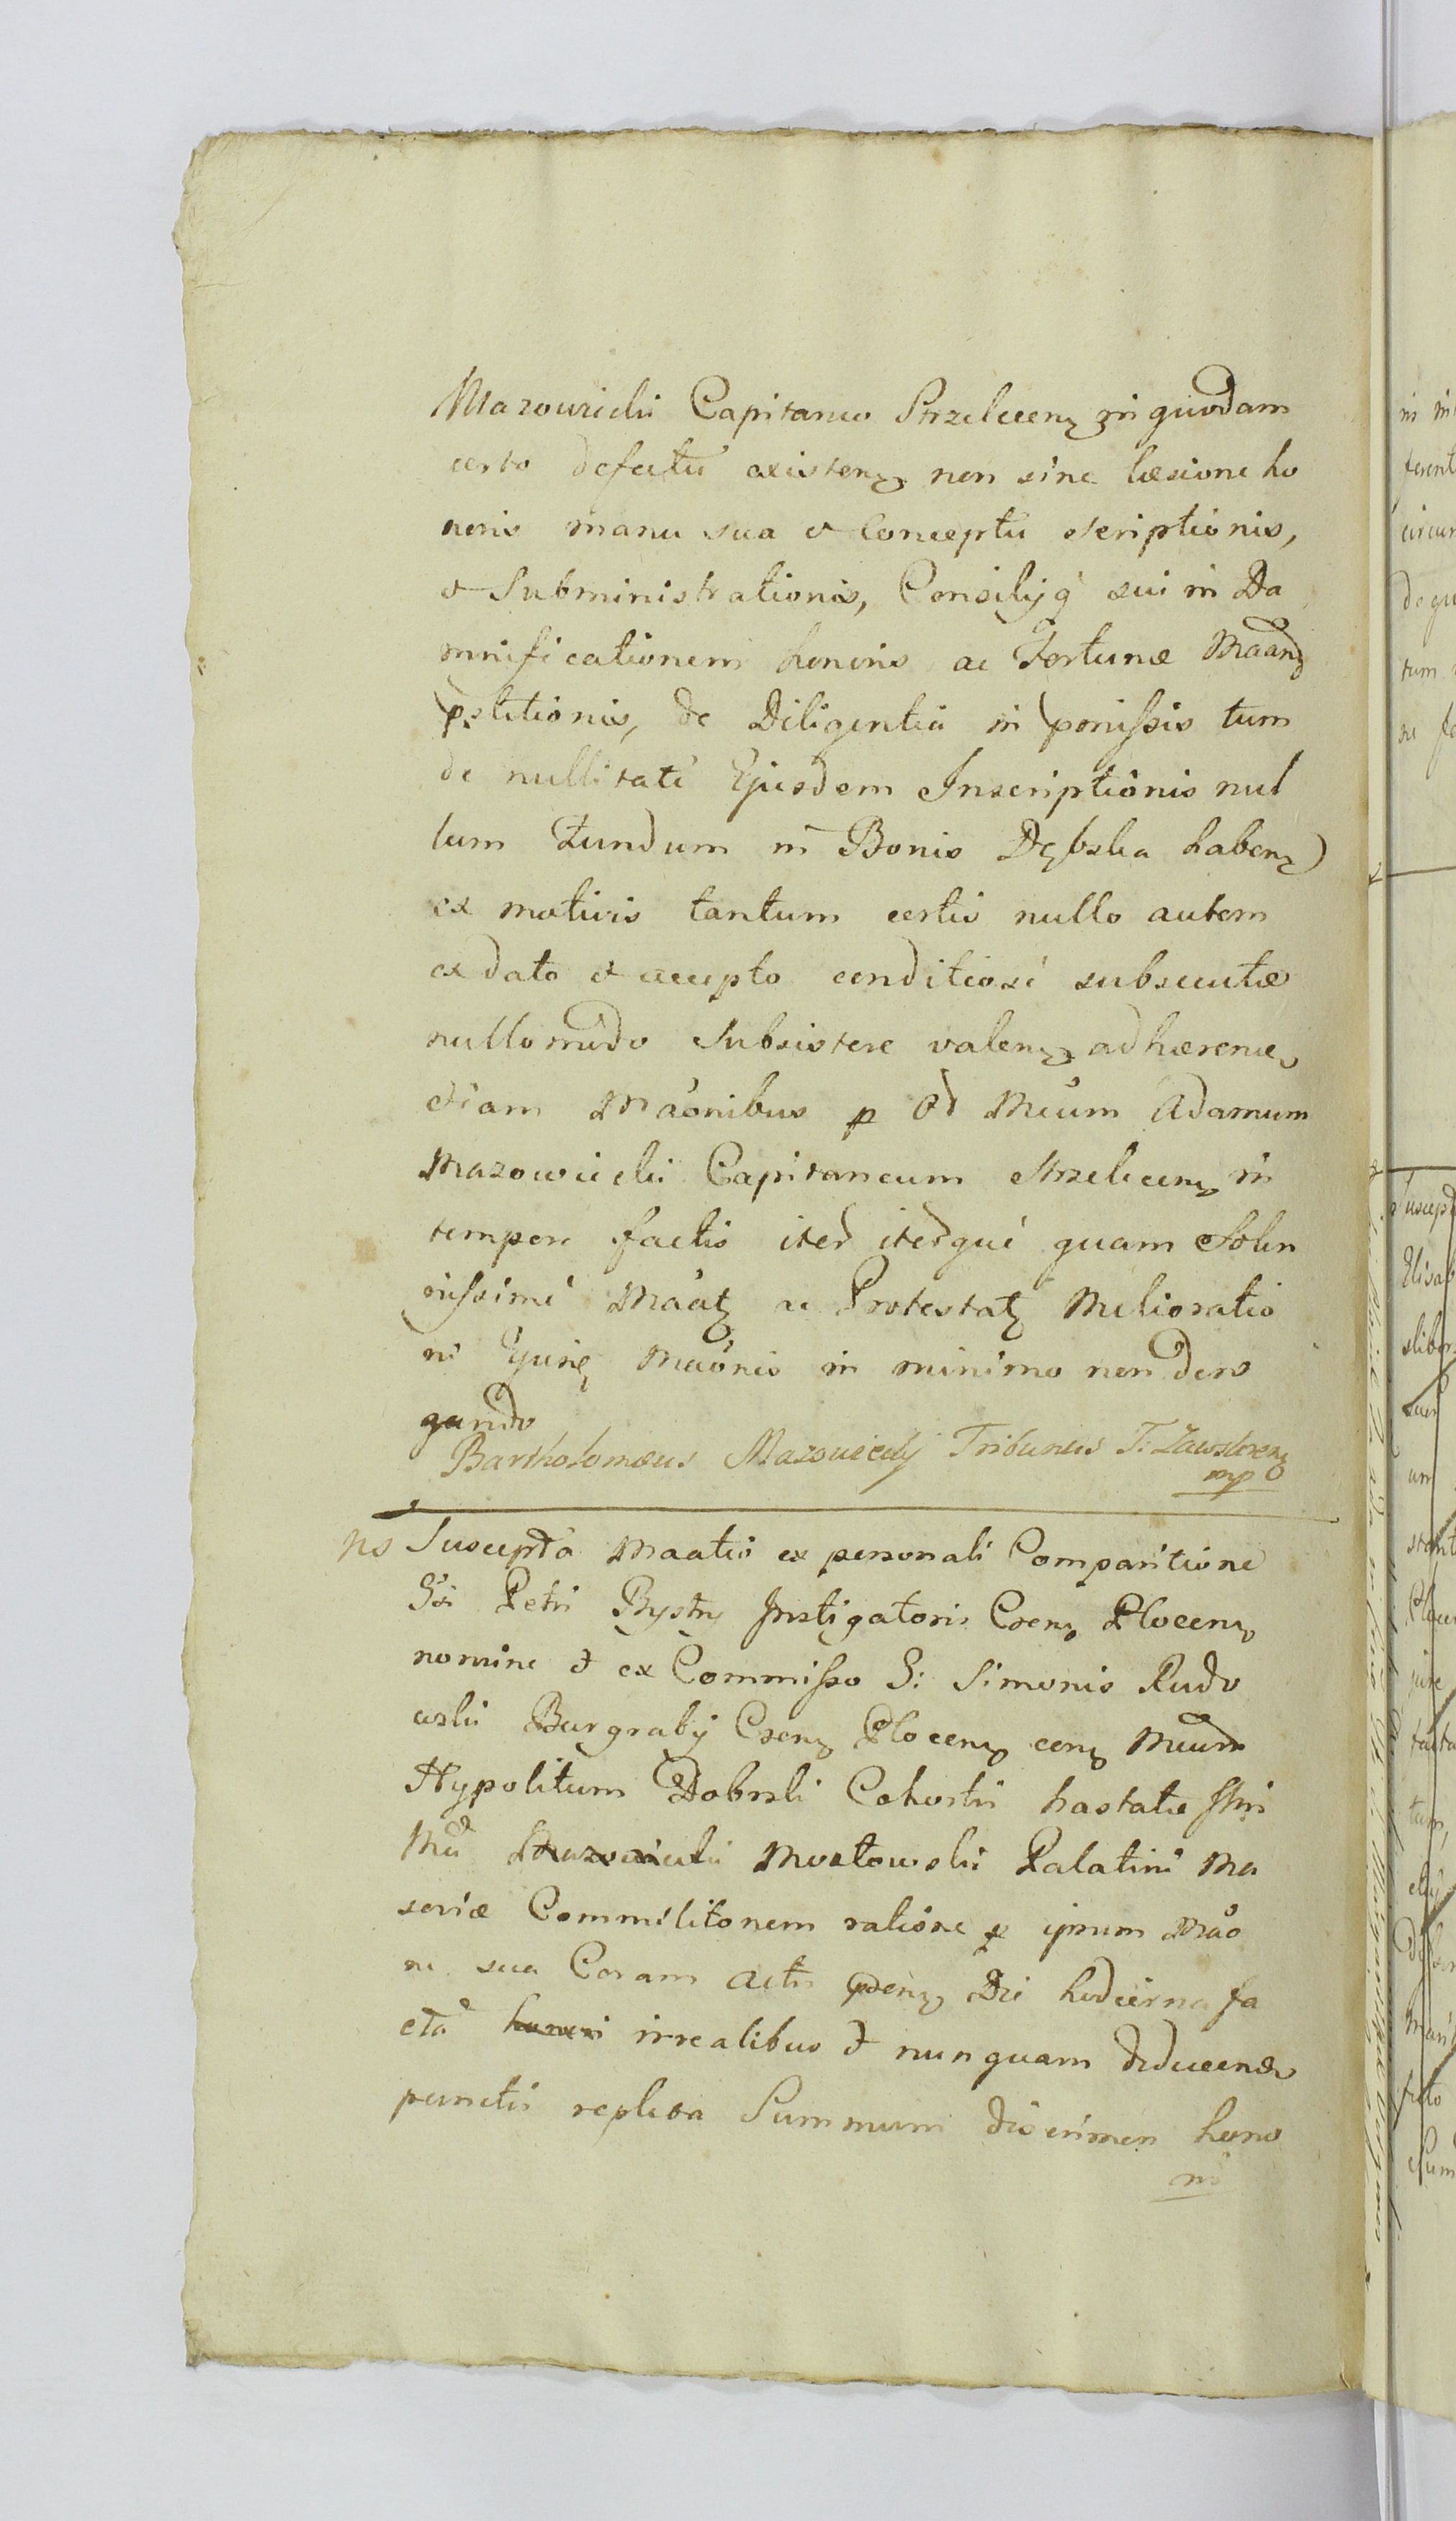 Mazowiecki Capitaneo Strzelecen in quodam
certo defectu existen non sine læsione ho
noris manu sua et Conceptu scriptionis,
et Subministrationis, Consilijq sui in Da
mnificationem honoris ac Fortunæ Maand
pstitionis, de Diligentia in pmissis tum
de nullitate Ejusdem Inscriptionis nul
lum Fundum in Bonis Dębska haben
ex motivis tantum certis nullo autem
ex dato et accepto conditiose subsecutæ
nullomodo subsistere valen adhæren
etiam Maonibus p Md Mcum Adamum
Mazowiecki Capitaneum Strzelecen in
tempore factis iter iterque quam Solen
nissime Maat ac Protestat Melioratio
ne Ejusq Maonis in minimo non dero
gando
Bartholomæus Mazowiecky Tribunus T: Zawskren
mp
ns Suscepta Maatio ex personali Comparitione
Gsi Petri Bystry Instigatoris Csen Plocen
nomine et ex Commisso G: Simonis Rudo
wski Burgrabij Csen Plocen con Mcum
Hypolitum Dobrski Cohortis hastatæ
Mci Mostowski Palatini Ma
soviæ Commilitonem ratione p ipsum Mao
ne sua Coram Actis psen Die hodierna fa
cta irrealibus et nunquam deducen
punctis repleta Summum discrimen hono
ris